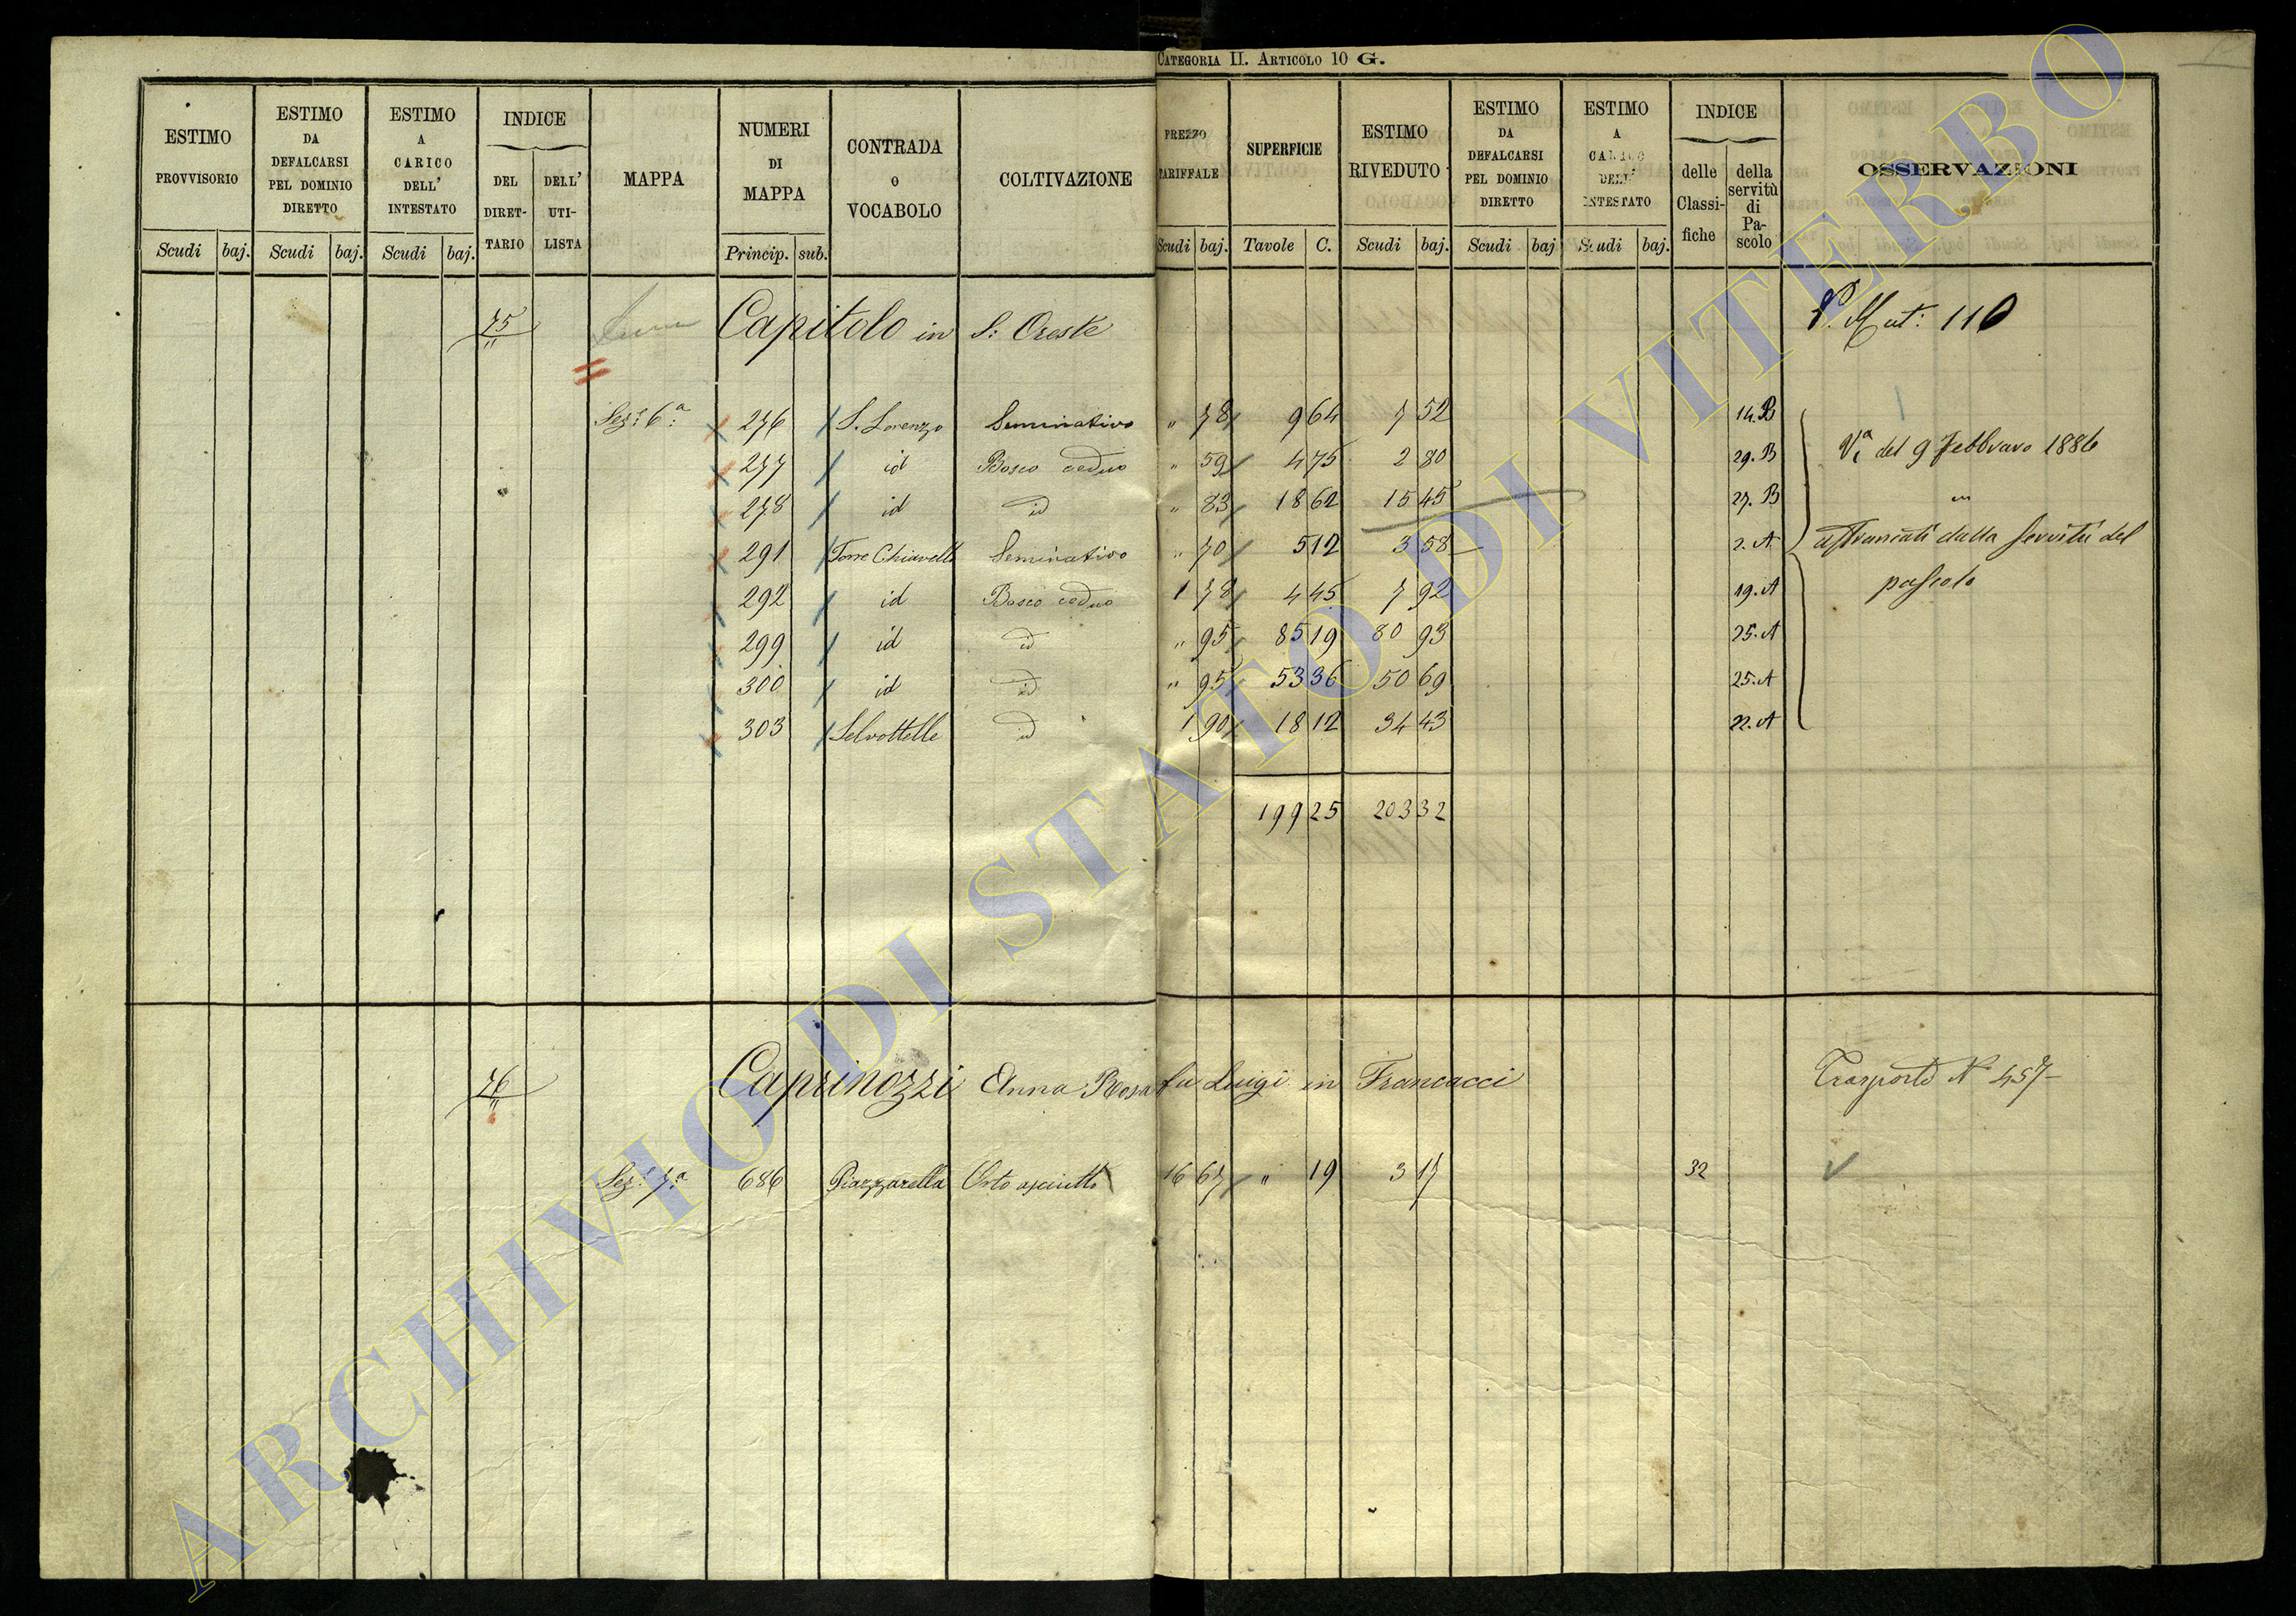 CATEGORIA II. ARTICOLO 10 G.
ESTIMO PROVVISORIO
ESTIMO DA DEFALCARSI PEL DOMINIO DIRETTO
ESTIMO A CARICO DELL' INTESTATO
INDICE
DEL DIRET-TARIO
DELL' UTI-LISTA
MAPPA
NUMERI DI MAPPA
CONTRADA O VOCABOLO
COLTIVAZIONE
PREZZO TARIFFALE
SUPERFICIE
ESTIMO RIVEDUTO
ESTIMO DA DEFALCARSI PEL DOMINIO DIRETTO
ESTIMO A CARICO DELL' INTESTATO
INDICE
delle Classi-fiche
della servitù di Pa-scolo
OSSERVAZIONI
Scudi baj. Scudi baj. Scudi baj. Princip. sub. Scudi baj. Tavole C. Scudi baj. Scudi baj Scudi baj.
75 Capitolo in S: Oreste V. Mut: 110
Sez: 6a 276 S. Lorenzo Seminativo " 78 9 64 7 52 14.B
277 id Bosco ceduo " 59 4 75 2 80 29.B Va del 9 Febbraro 1886
278 id id " 83 18 62 15 45 27.B
291 Torre Chiavelli Seminativo " 70 5 12 3 58 2.A affrancati dalla servitù del
292 id Bosco ceduo 1 78 4 45 7 92 19.A pascolo
299 id id " 95 85 19 80 93 25.A
300 id id " 95 53 36 50 69 25.A
303 Selvottelle id 1 90 18 12 34 43 22.A
199 25 203 32
76 Caprinozzi Anna Rosa fu Luigi in Francacci Trasporto N 457
Sez: 7a 686 Piazzarella Orto asciutto 16 67 " 19 3 17 32
ARCHIVIO DI STATO DI VITERBO